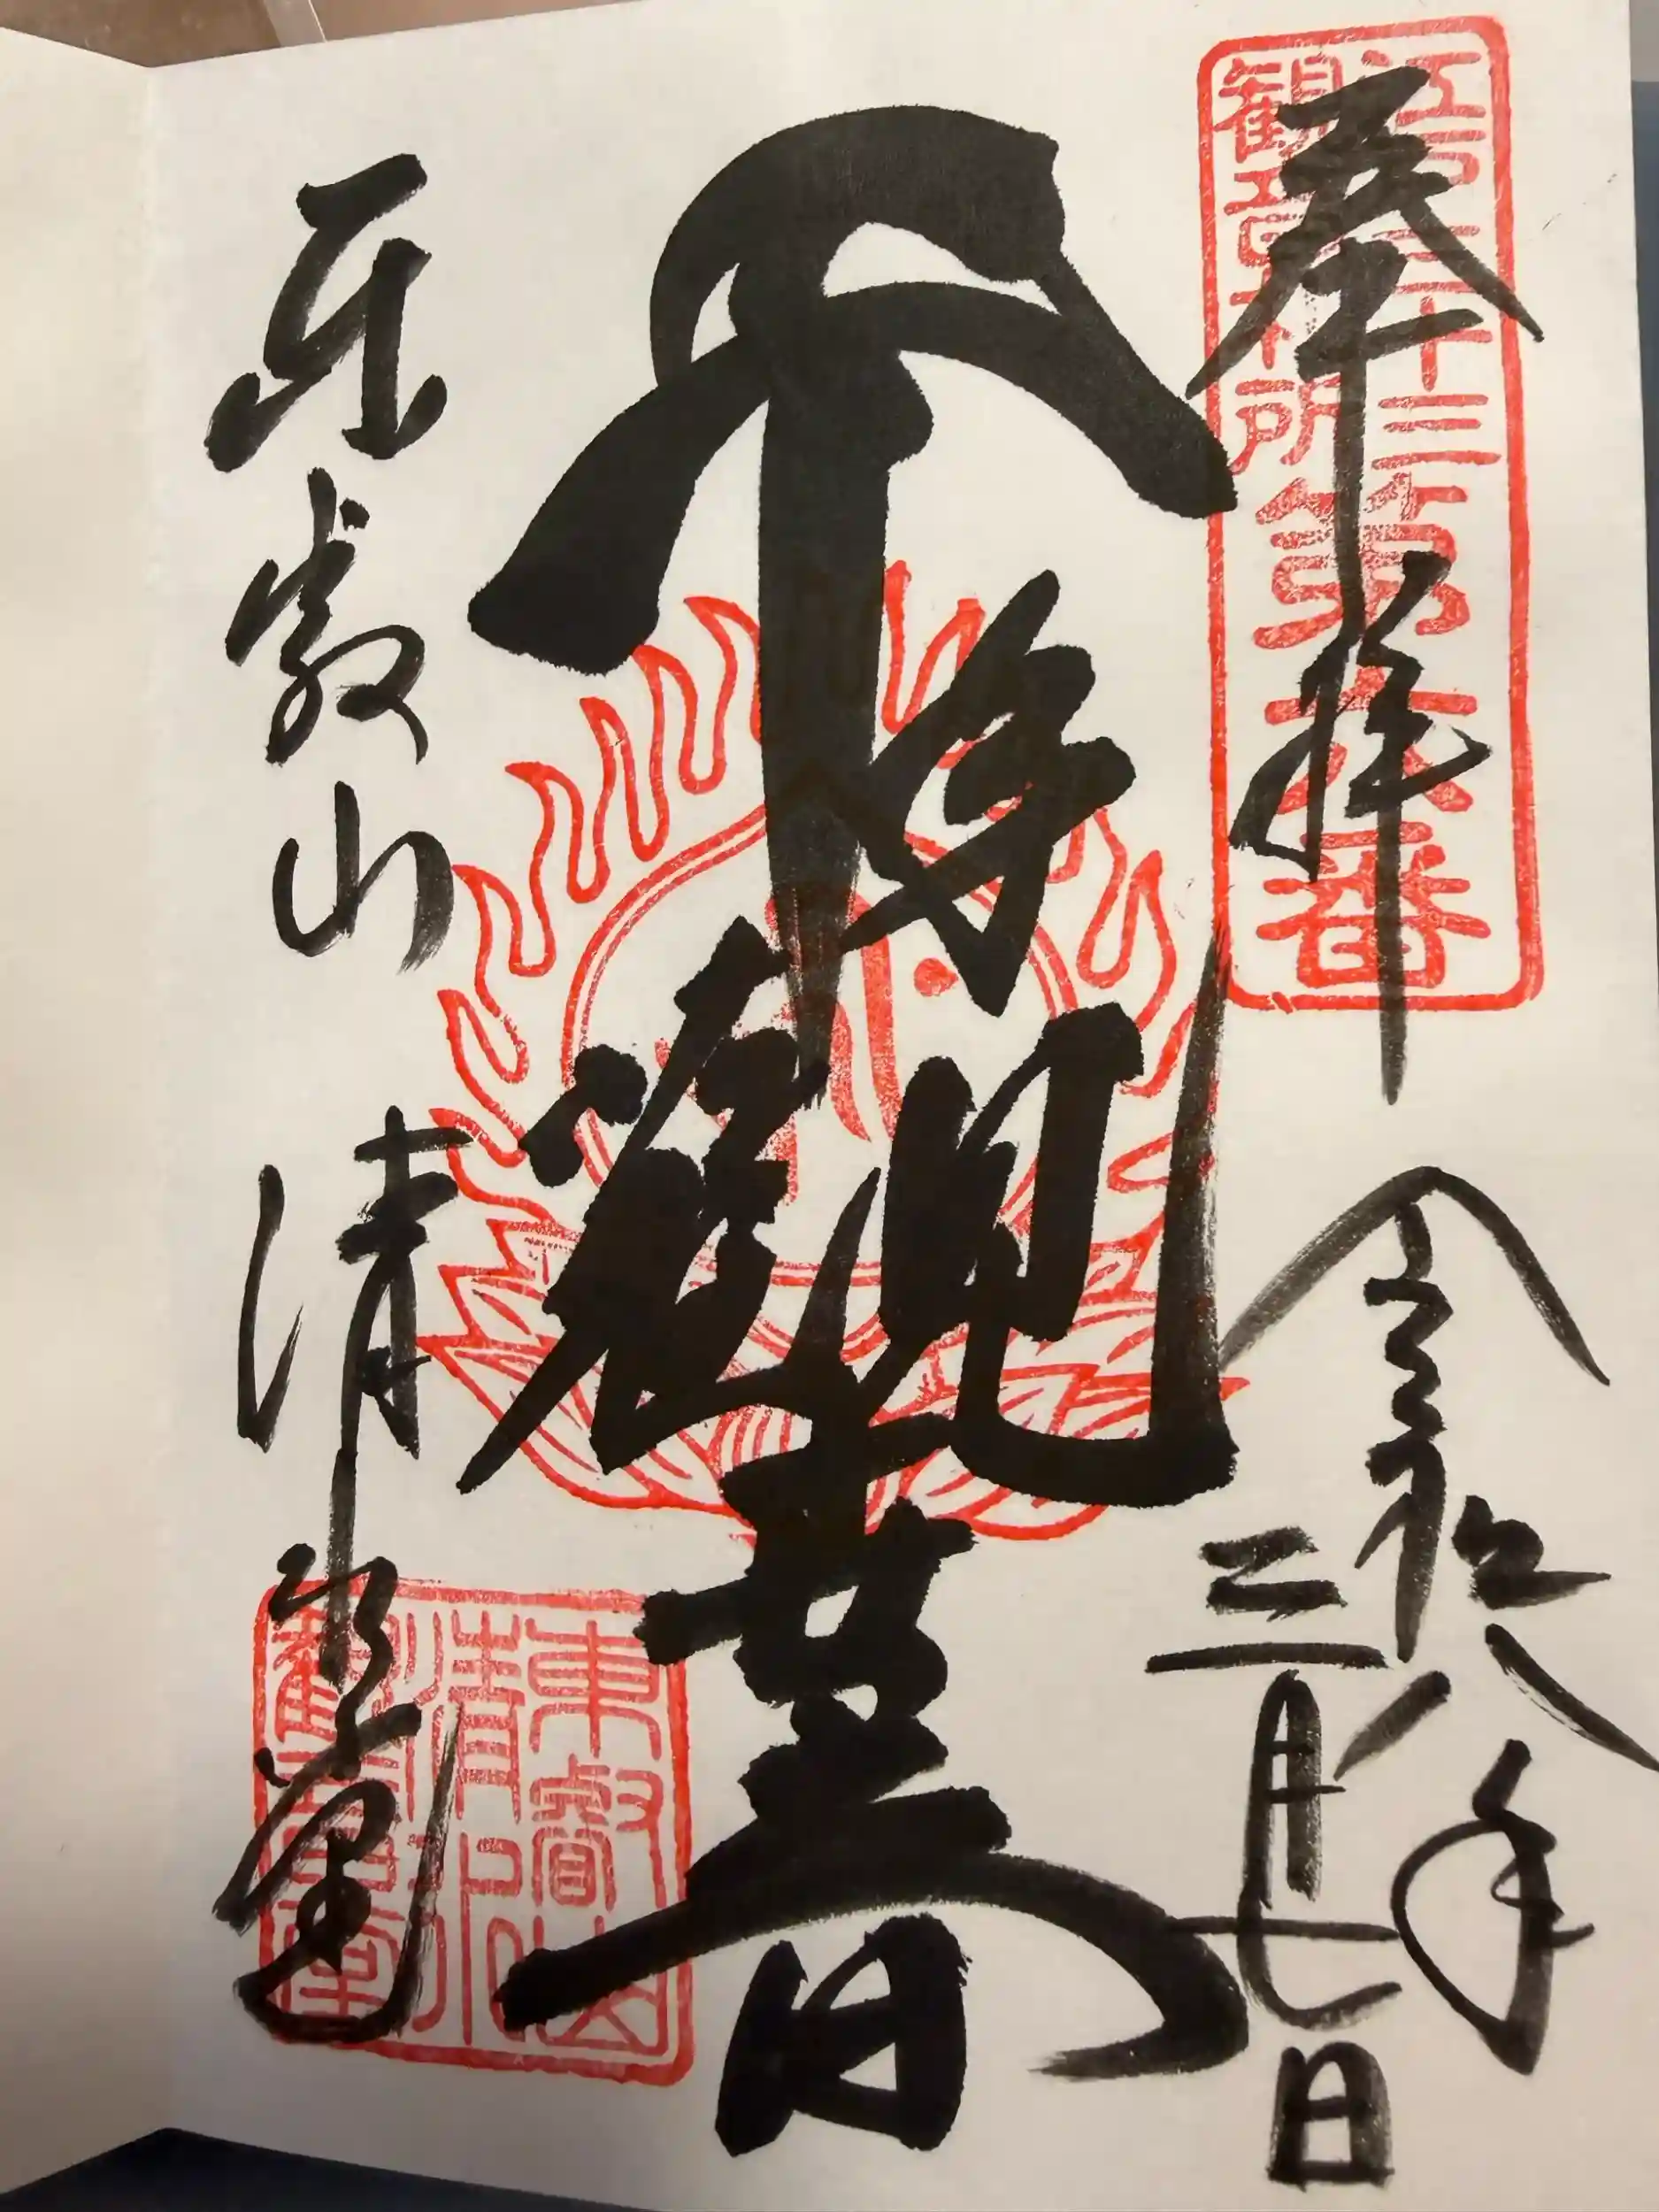 奉拝
江戸三十三
観音札所
第六番
令和八年
三月七日
千手觀世音
東叡山
清水堂
東叡山
清水
観音堂